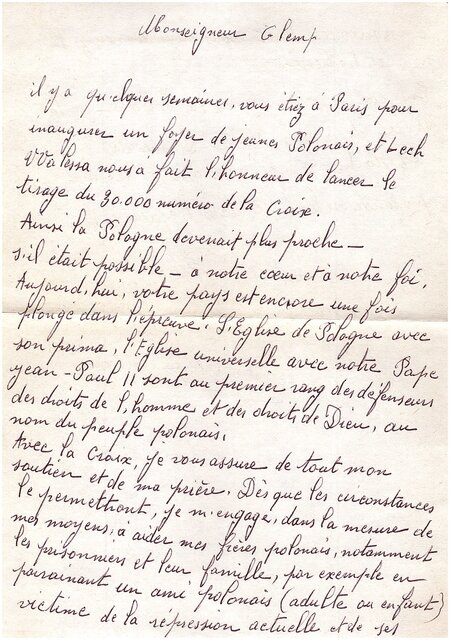 Monseigneur Glemp
il y a quelques semaines, vous étiez à Paris pour
inaugurer un foyer de jeunes Polonais, et Lech
WWalessa nous à fait l'honneur de lancer le
tirage du 30.000 numéro de la Croix.
Ainsi la Pologne devenait plus proche –
s'il était possible – à notre cœur et à notre foi.
Aujourd'hui, votre pays est encrore une fois
plongé dans l'épreuve. L'Eglise de Pologne avec
son prima, l'Eglise universelle avec notre Pape
jean-Paul II sont au premier rang des défenseurs
des droits de l'homme et des droits de Dieu, au
nom du peuple polonais.
Avec la Croix, je vous assure de tout mon
soutien et de ma prière. Dès que les circonstances
le permettront, je m'engage, dans la mesure de
mes moyens, à aider mes frères polonais, notamment
les prisonniers et leur famille, par exemple en
parrainant un ami polonais (adulte ou enfant)
victime de la répression actuelle et de ses